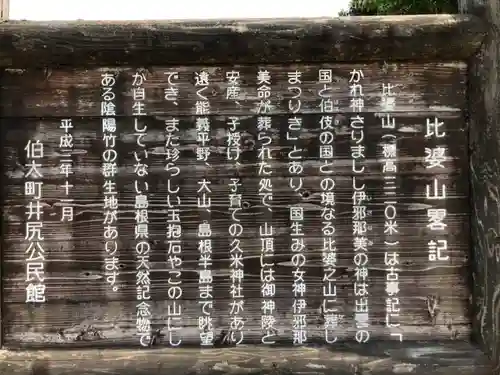 比婆山畧記
比婆山(標高三二〇米)は古事記に「
かれ神さりましし伊邪那美の神は出雲の
国と伯伎の国との境なる比婆之山に葬し
まつりき」とあり、国生みの女神伊邪那
美命が葬られた処で、山頂には御神陵と
安産、子授け、子育ての久米神社があり
遠く能義平野、大山、島根半島まで眺望
でき、また珍らしい玉抱石やこの山にし
か自生していない島根県の天然記念物で
ある陰陽竹の群生地があります。
平成二年十一月
伯太町井尻公民館